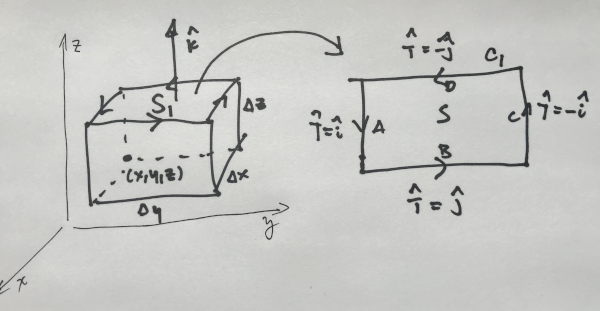 z
k̂
S₁
Δz
(x,y,z)
Δx
Δy
y
x
T̂ = -ĵ
C₁
D
T̂ = î
A
S
C
T̂ = -î
B
T̂ = ĵ